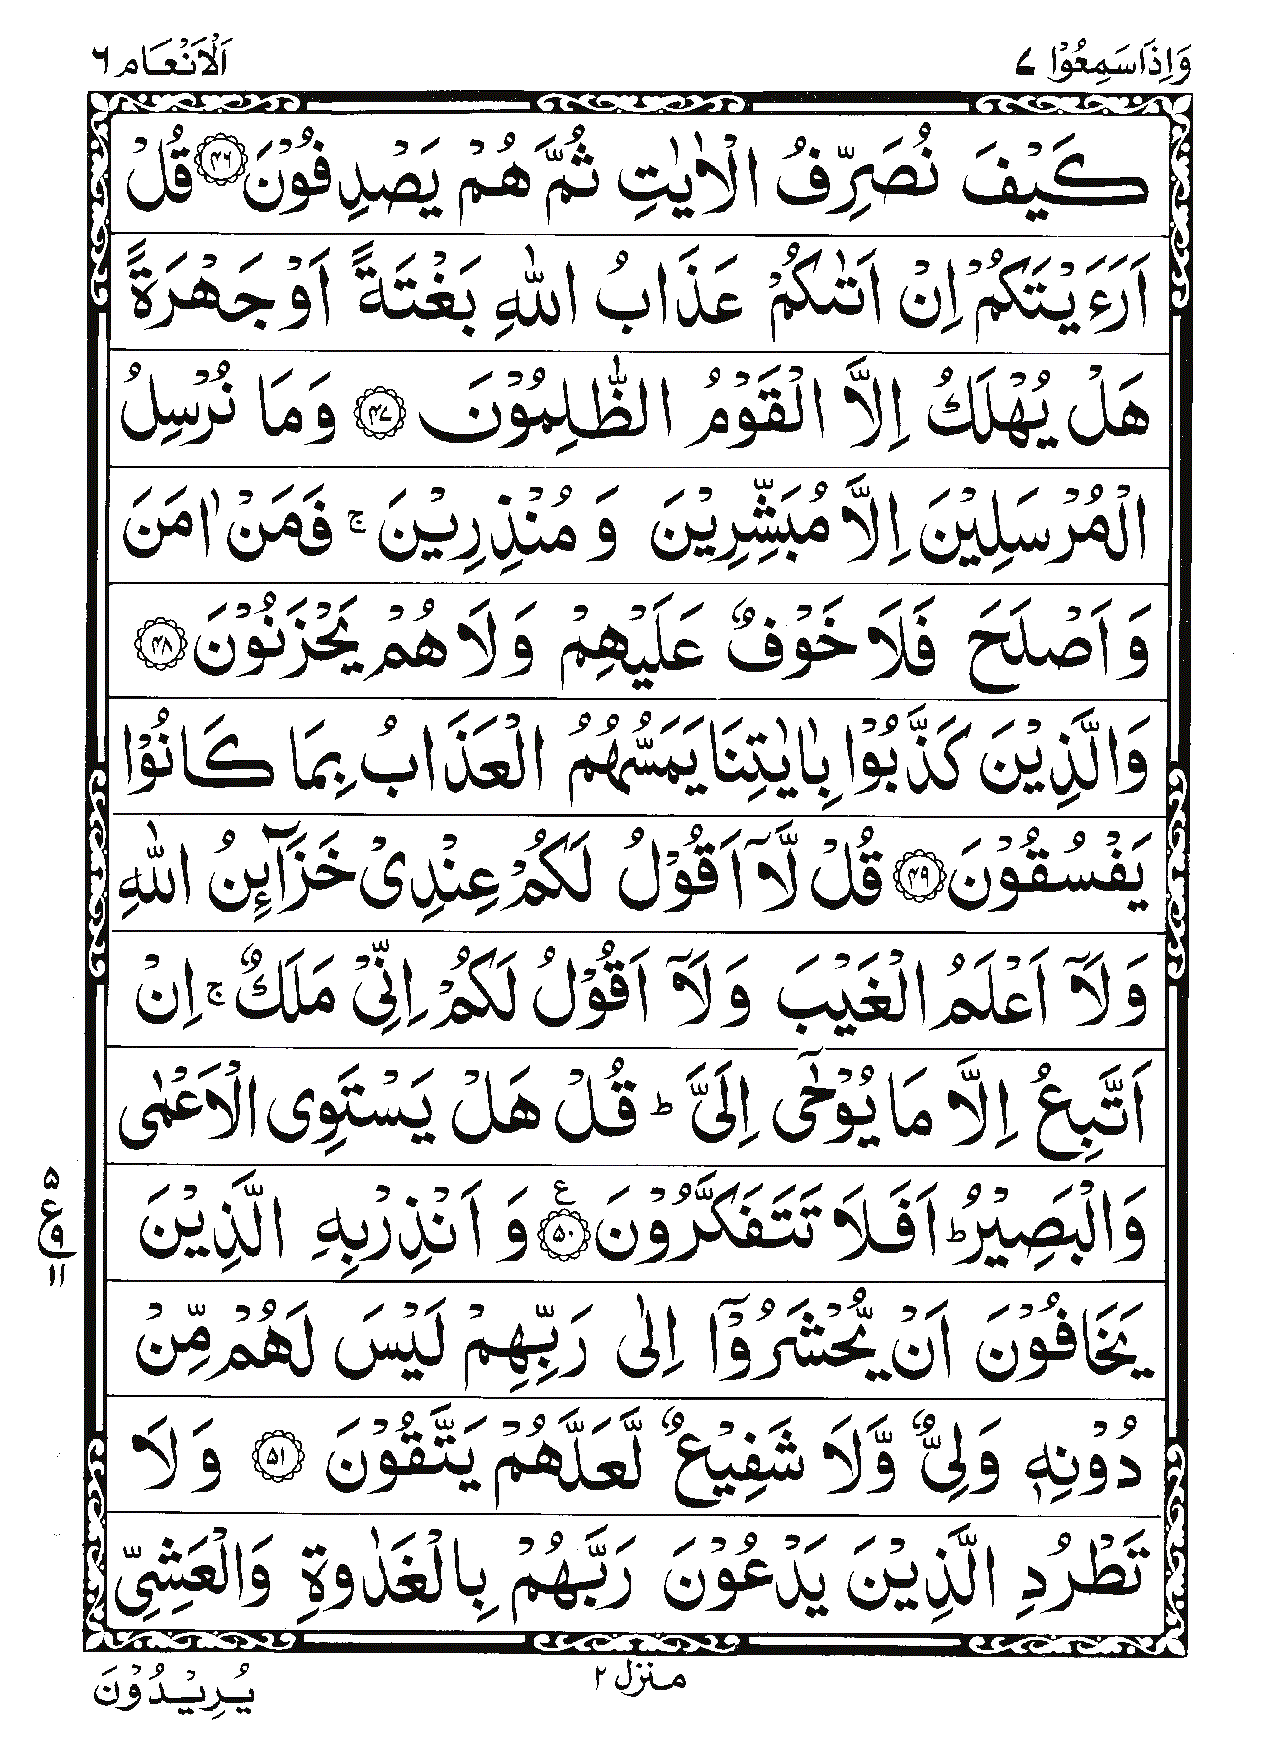 وَاِذَا سَمِعُوْا ٧ اَلْاَنْعَام ٦
كَيْفَ نُصَرِّفُ الْاٰيٰتِ ثُمَّ هُمْ يَصْدِفُوْنَ ﴿۴۶﴾ قُلْ
اَرَءَيْتَكُمْ اِنْ اَتٰىكُمْ عَذَابُ اللّٰهِ بَغْتَةً اَوْ جَهْرَةً
هَلْ يُهْلَكُ اِلَّا الْقَوْمُ الظّٰلِمُوْنَ ﴿۴۷﴾ وَمَا نُرْسِلُ
الْمُرْسَلِيْنَ اِلَّا مُبَشِّرِيْنَ وَ مُنْذِرِيْنَ ۚ فَمَنْ اٰمَنَ
وَ اَصْلَحَ فَلَا خَوْفٌ عَلَيْهِمْ وَلَا هُمْ يَحْزَنُوْنَ ﴿۴۸﴾
وَالَّذِيْنَ كَذَّبُوْا بِاٰيٰتِنَا يَمَسُّهُمُ الْعَذَابُ بِمَا كَانُوْا
يَفْسُقُوْنَ ﴿۴۹﴾ قُلْ لَّاۤ اَقُوْلُ لَكُمْ عِنْدِىْ خَزَآئِنُ اللّٰهِ
وَلَاۤ اَعْلَمُ الْغَيْبَ وَلَاۤ اَقُوْلُ لَكُمْ اِنِّىْ مَلَكٌ ۚ اِنْ
اَتَّبِعُ اِلَّا مَا يُوْحٰۤى اِلَىَّ ؕ قُلْ هَلْ يَسْتَوِى الْاَعْمٰى
وَالْبَصِيْرُ ؕ اَفَلَا تَتَفَكَّرُوْنَ ﴿۵۰﴾ ع وَ اَنْذِرْ بِهِ الَّذِيْنَ
۵
ع ۹
۱۱
يَخَافُوْنَ اَنْ يُّحْشَرُوْۤا اِلٰى رَبِّهِمْ لَيْسَ لَهُمْ مِّنْ
دُوْنِهٖ وَلِىٌّ وَّلَا شَفِيْعٌ لَّعَلَّهُمْ يَتَّقُوْنَ ﴿۵۱﴾ وَلَا
تَطْرُدِ الَّذِيْنَ يَدْعُوْنَ رَبَّهُمْ بِالْغَدٰوةِ وَالْعَشِىِّ
منزل ٢
يُرِيْدُوْنَ